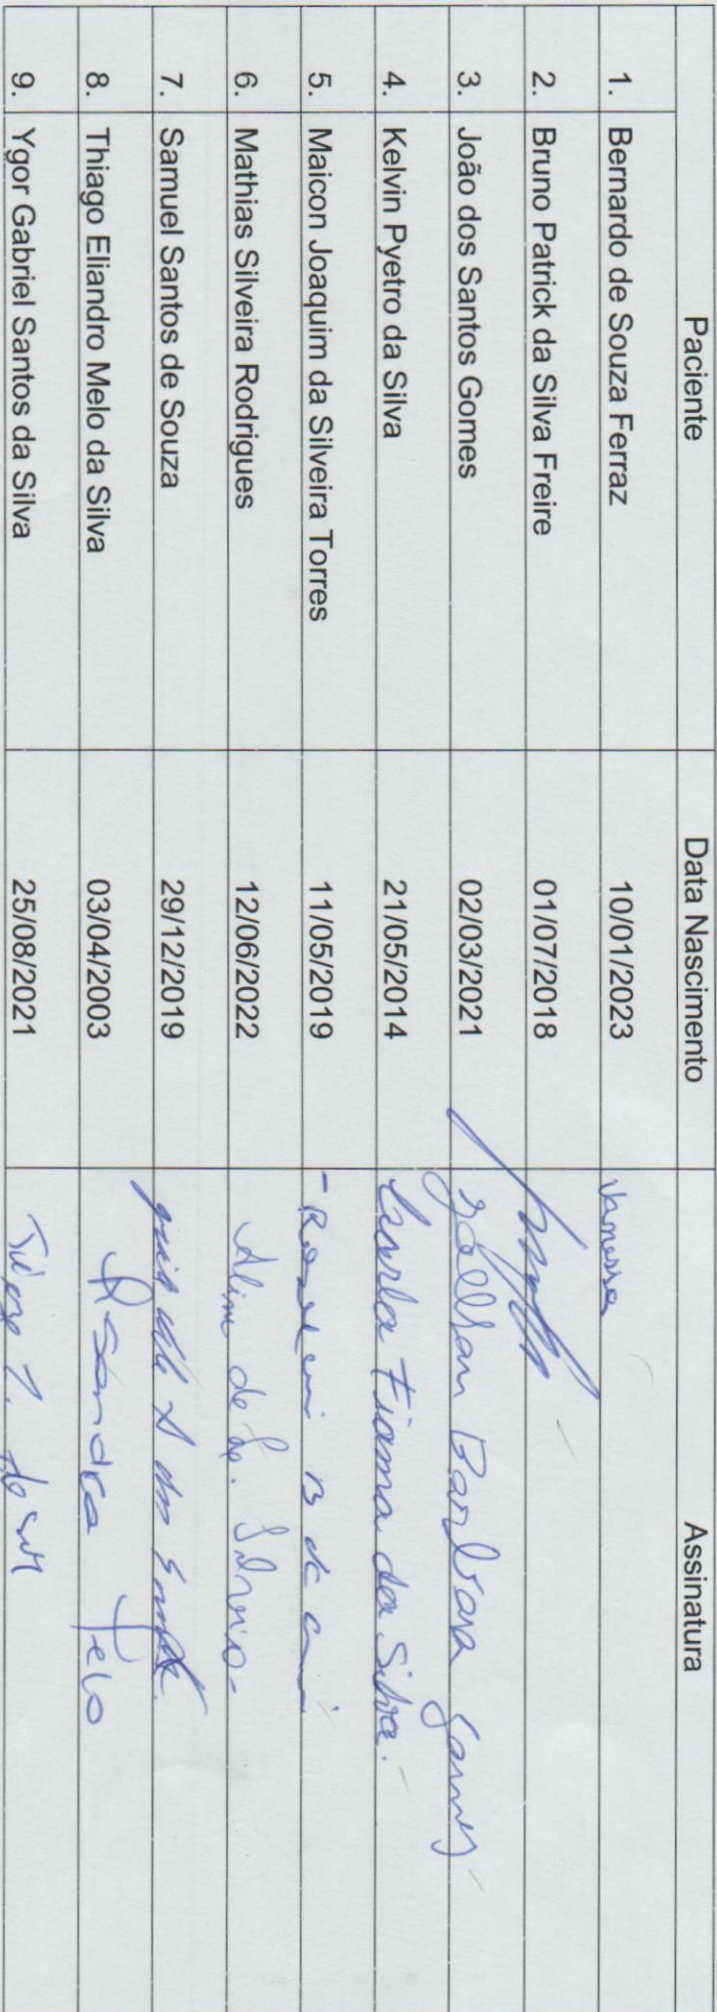 Paciente Data Nascimento Assinatura
1. Bernardo de Souza Ferraz 10/01/2023 Vanessa
2. Bruno Patrick da Silva Freire 01/07/2018
3. João dos Santos Gomes 02/03/2021 Barbosa Gomes
4. Kelvin Pyetro da Silva 21/05/2014 Carla Fiama da Silva.
5. Maicon Joaquim da Silveira Torres 11/05/2019
6. Mathias Silveira Rodrigues 12/06/2022 Aline de
7. Samuel Santos de Souza 29/12/2019
8. Thiago Eliandro Melo da Silva 03/04/2003
9. Ygor Gabriel Santos da Silva 25/08/2021